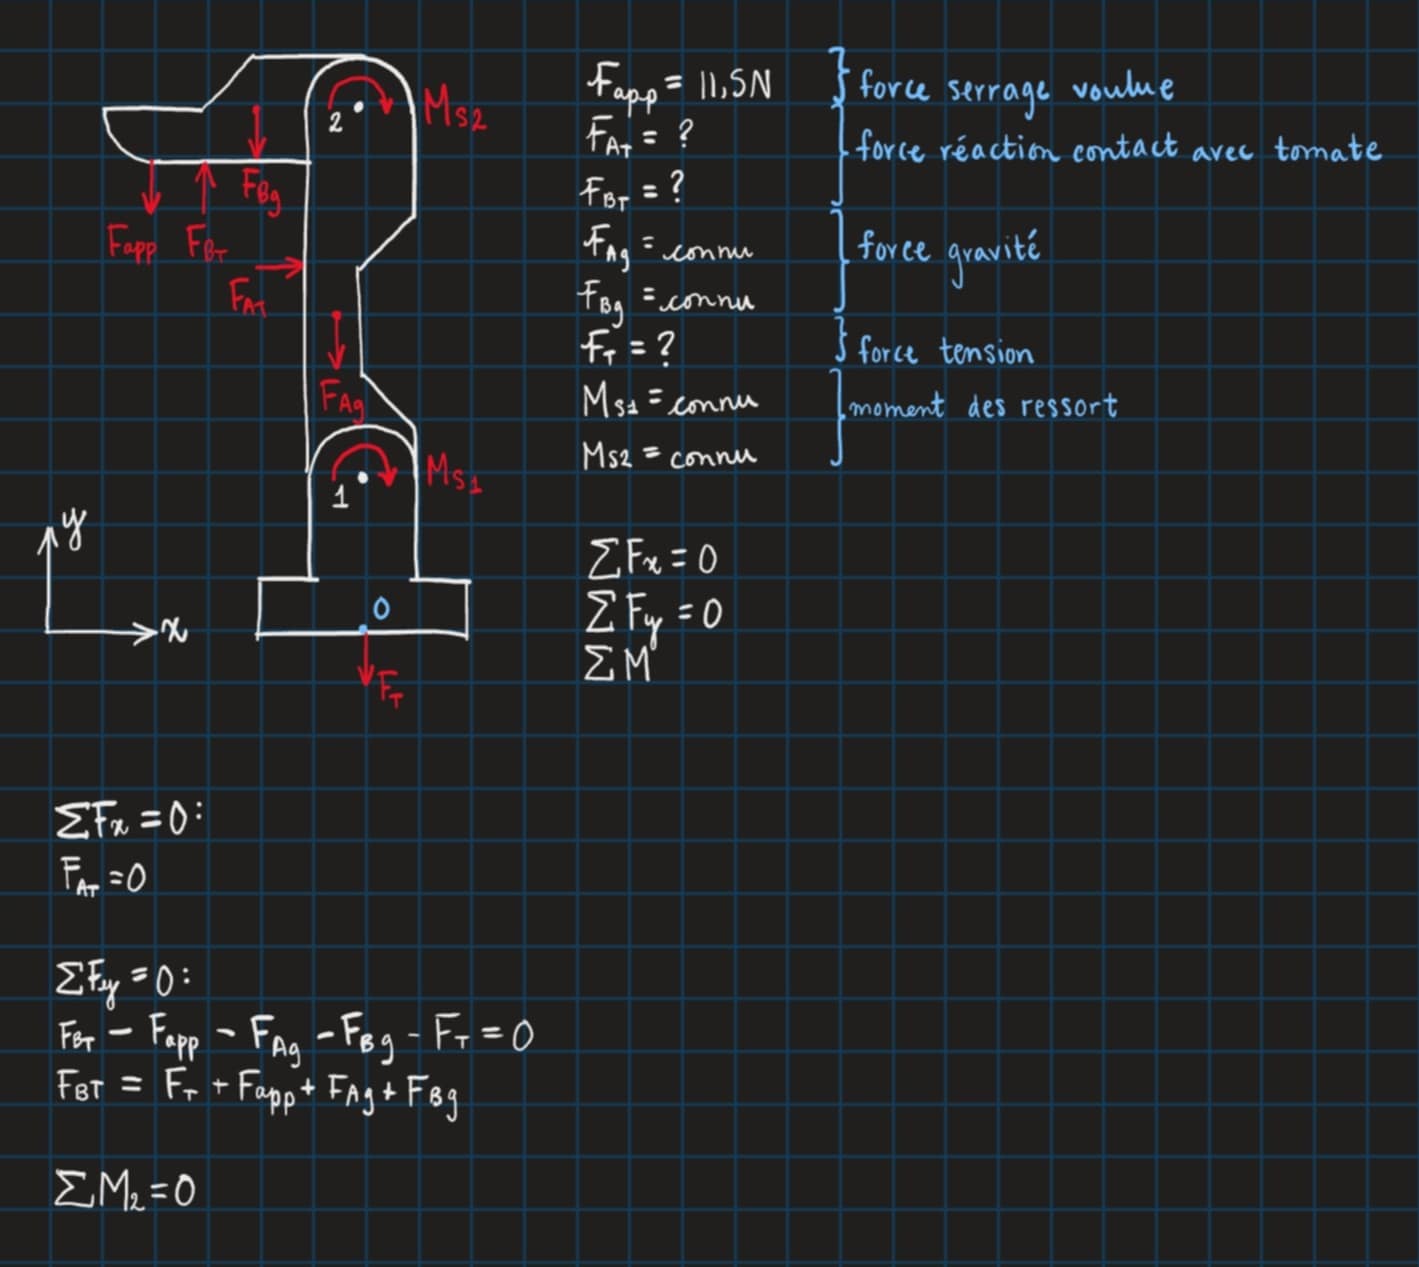 2
M_S2
F_Bg
F_app
F_BT
F_AT
F_Ag
1
M_S1
y
x
0
F_T
F_app = 11,5N } force serrage voulue
F_AT = ?
F_BT = ? } force réaction contact avec tomate
F_Ag = connu
F_Bg = connu } force gravité
F_T = ? } force tension
M_S1 = connu
M_S2 = connu } moment des ressort
ΣF_x = 0
ΣF_y = 0
ΣM
ΣF_x = 0 :
F_AT = 0
ΣF_y = 0 :
F_BT - F_app - F_Ag - F_Bg - F_T = 0
F_BT = F_T + F_app + F_Ag + F_Bg
ΣM_2 = 0